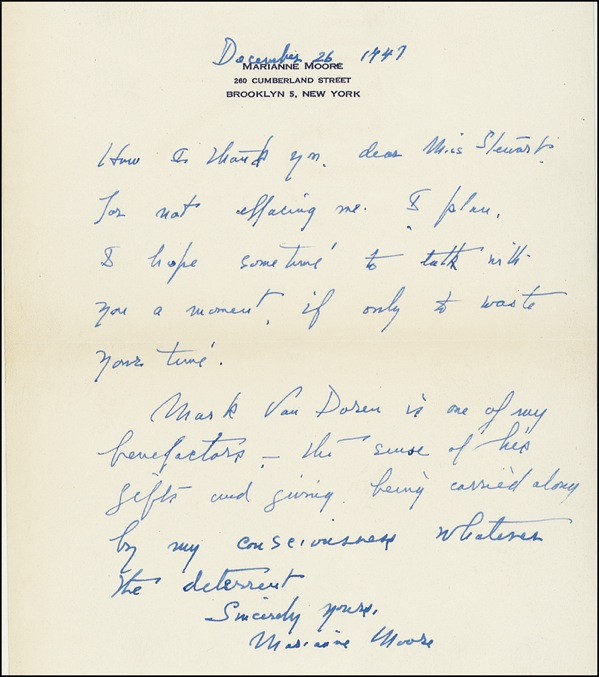 December 26, 1947
MARIANNE MOORE
260 CUMBERLAND STREET
BROOKLYN 5, NEW YORK
How I thank you, dear Miss Stewart,
for not effacing me. I plan,
I hope sometime to talk with
you a moment, if only to waste
your time.
Mark Van Doren is one of my
benefactors – the sense of his
gifts and giving being carried along
by my consciousness whatever
the deterrent
Sincerely yours,
Marianne Moore